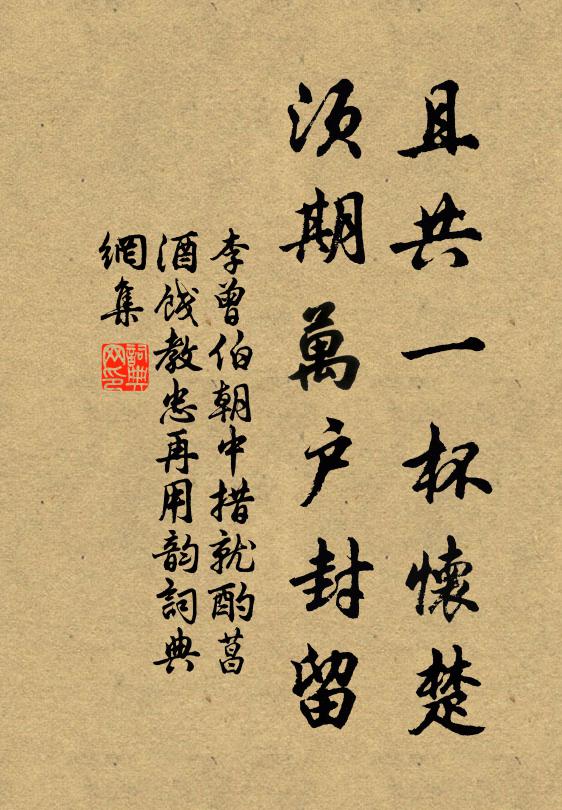 且共一杯懷楚
須期萬户封留
李曾伯朝中措就酌菖
酒餞教忠再用韵詞典
網集
詞典网印